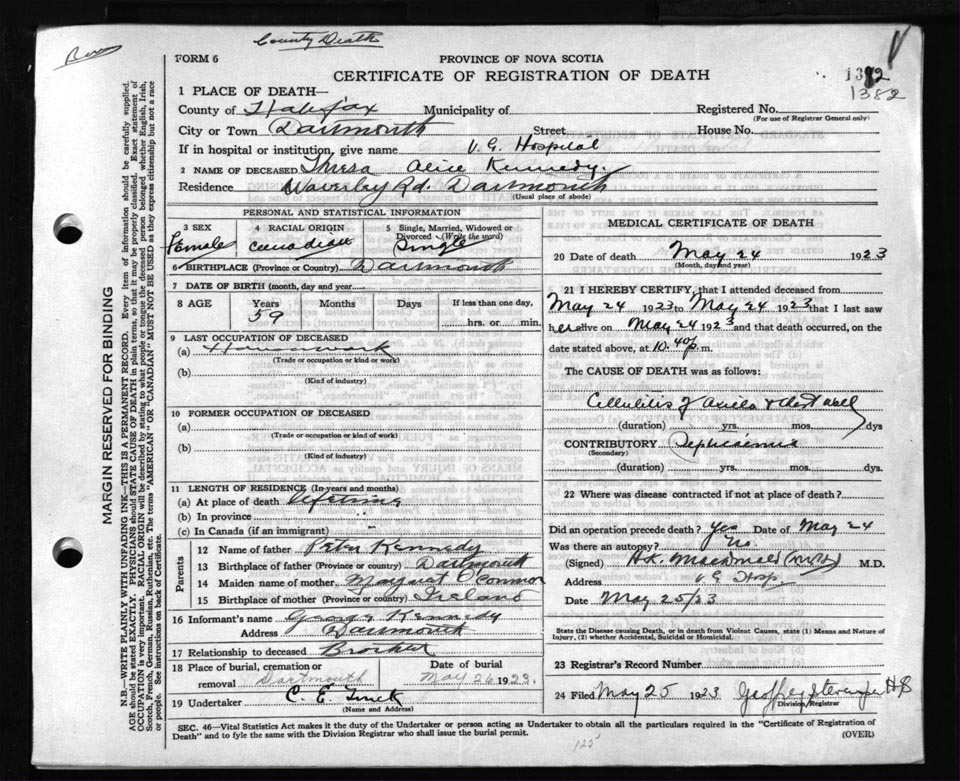 County Death
FORM 6
PROVINCE OF NOVA SCOTIA
CERTIFICATE OF REGISTRATION OF DEATH
1382
1 PLACE OF DEATH—
County of Halifax Municipality of
Registered No.
(For use of Registrar General only)
City or Town Dartmouth Street House No.
If in hospital or institution, give name V. G. Hospital
2 NAME OF DECEASED Thresa Alice Kennedy.
Residence Waverley Rd. Dartmouth
(Usual place of abode)
PERSONAL AND STATISTICAL INFORMATION
3 SEX
Female
4 RACIAL ORIGIN
Canadian
5 Single, Married, Widowed or Divorced (Write the word)
Single
6 BIRTHPLACE (Province or Country) Dartmouth
7 DATE OF BIRTH (month, day and year
8 AGE Years Months Days If less than one day,
59 hrs. or min.
9 LAST OCCUPATION OF DECEASED
(a) Housework
(Trade or occupation or kind or work)
(b)
(Kind of industry)
10 FORMER OCCUPATION OF DECEASED
(a)
(Trade or occupation or kind of work)
(b)
(Kind of industry)
11 LENGTH OF RESIDENCE (In years and months)
(a) At place of death lifetime
(b) In province "
(c) In Canada (if an immigrant)
Parents
12 Name of father Peter Kennedy
13 Birthplace of father (Province or country) Dartmouth
14 Maiden name of mother Margaret O'Connor
15 Birthplace of mother (Province or country) Ireland
16 Informant's name George Kennedy
Address Dartmouth
17 Relationship to deceased Brother
18 Place of burial, cremation or removal Dartmouth
Date of burial
May 26 1923.
19 Undertaker C. E.
(Name and Address)
MEDICAL CERTIFICATE OF DEATH
20 Date of death May 24 1923
(Month, day and year)
21 I HEREBY CERTIFY, that I attended deceased from
May 24 1923 to May 24 1923 that I last saw
her alive on May 24 1923 and that death occurred, on
date stated above, at 10.40 p. m.
The CAUSE OF DEATH was as follows:
Cellulitis of Axilla & chest wall
(duration) yrs. mos. dys
CONTRIBUTORY Septicaemia
(Secondary)
(duration) yrs. mos. dys.
22 Where was disease contracted if not at place of death?
Did an operation precede death? Yes Date of May 24
Was there an autopsy? No.
(Signed) H.K. MacDonald M.D.
Address V G Hosp.
Date May 25/23
State the Disease causing Death, or in death from Violent Causes, state (1) Means and Nature of
Injury, (2) whether Accidental, Suicidal or Homicidal.
23 Registrar's Record Number
24 Filed May 25 1923
Division Registrar
SEC. 46—Vital Statistics Act makes it the duty of the Undertaker or person acting as Undertaker to obtain all the particulars required in the "Certificate of Registration of
Death" and to fyle the same with the Division Registrar who shall issue the burial permit.
(OVER)
125
MARGIN RESERVED FOR BINDING
N.B.—WRITE PLAINLY WITH UNFADING INK—THIS IS A PERMANENT RECORD. Every item of information should be carefully supplied.
AGE should be stated EXACTLY. PHYSICIANS should STATE CAUSE OF DEATH in plain terms, so that it may be properly classified. Exact statement of
OCCUPATION is very important. RACIAL ORIGIN will be described by stating to what people or tongue the deceased person belonged whether English, Irish,
Scotch, French, German, Russian, Ruthenian, etc. The terms "AMERICAN" OR "CANADIAN" MUST NOT BE USED as they express citizenship but not a race
or people. See instructions on back of Certificate.